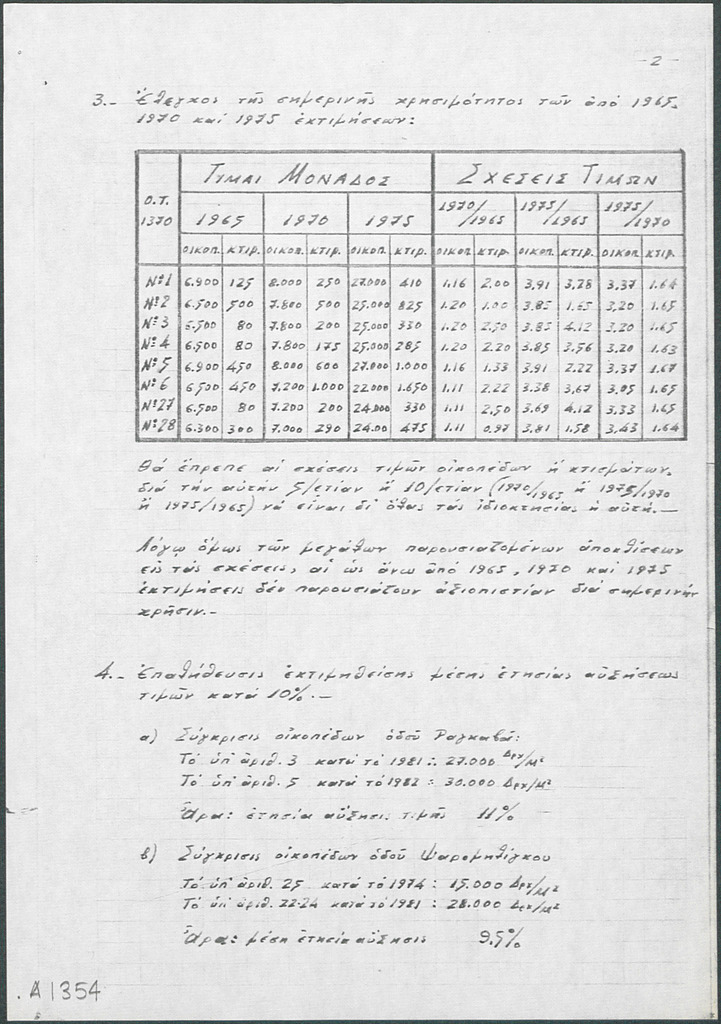 -2-
3.- Ἔλεγχος τῆς σημερινῆς χρησιμότητος τῶν ἀπό 1965,
1970 καί 1975 ἐκτιμήσεων:
Ο.Τ. 1370 ΤΙΜΑΙ ΜΟΝΑΔΟΣ ΣΧΕΣΕΙΣ ΤΙΜΩΝ
1965 1970 1975 1970/1965 1975/1965 1975/1970
ΟΙΚΟΠ. ΚΤΙΡ. ΟΙΚΟΠ. ΚΤΙΡ. ΟΙΚΟΠ. ΚΤΙΡ. ΟΙΚΟΠ. ΚΤΙΡ. ΟΙΚΟΠ. ΚΤΙΡ. ΟΙΚΟΠ. ΚΤΙΡ.
Νº1 6.900 125 8.000 250 27.000 410 1.16 2.00 3,91 3,28 3,37 1.64
Νº2 6.500 500 7.800 500 25.000 825 1.20 1.00 3.85 1.65 3,20 1.65
Νº3 6.500 80 7.800 200 25.000 330 1.20 2,50 3.85 4.12 3,20 1.65
Νº4 6,500 80 7.800 175 25,000 285 1.20 2.20 3.85 3.56 3,20 1.63
Νº5 6.900 450 8.000 600 27.000 1.000 1.16 1.33 3.91 2.22 3,37 1.67
Νº6 6,500 450 7,200 1.000 22.000 1.650 1.11 2.22 3.38 3,67 3.05 1.65
Νº27 6,500 80 7.200 200 24.000 330 1.11 2,50 3.69 4.12 3,33 1.65
Νº28 6.300 300 7.000 290 24.00 475 1.11 0,97 3.81 1.58 3,43 1.64
Θά ἔπρεπε αἱ σχέσεις τιμῶν οἰκοπέδων ἤ κτισμάτων,
διά τήν αὐτήν 5/ετίαν ἤ 10/ετίαν (1970/1965 ἤ 1975/1970
ἤ 1975/1965) νά εἶναι δι' ὅλας τάς ἰδιοκτησίας ἡ αὐτή.-
Λόγῳ ὅμως τῶν μεγάλων παρουσιαζομένων ἀποκλίσεων
εἰς τάς σχέσεις, αἱ ὡς ἄνω ἀπό 1965, 1970 καί 1975
ἐκτιμήσεις δέν παρουσιάζουν ἀξιοπιστίαν διά σημερινήν
χρῆσιν.-
4.- Ἐπαλήθευσις ἐκτιμηθείσης μέσης ἐτησίας αὐξήσεως
τιμῶν κατά 10%.-
α) Σύγκρισις οἰκοπέδων ὁδοῦ Ραγκαβᾶ:
Τό ὑπ' ἀριθ. 3 κατά τό 1981 : 27.000 Δρχ/Μ²
Τό ὑπ' ἀριθ. 5 κατά τό 1982 : 30.000 Δρχ/Μ²
Ἄρα: ἐτησία αὔξησις τιμῆς 11%
β) Σύγκρισις οἰκοπέδων ὁδοῦ Ψαρομηλίγκου
Τό ὑπ' ἀριθ. 25 κατά τό 1974 : 15.000 Δρχ/Μ²
Τό ὑπ' ἀριθ. 22-24 κατά τό 1981 : 28.000 Δρχ/Μ²
Ἄρα: μέση ἐτησία αὔξησις 9.5%
.A1354